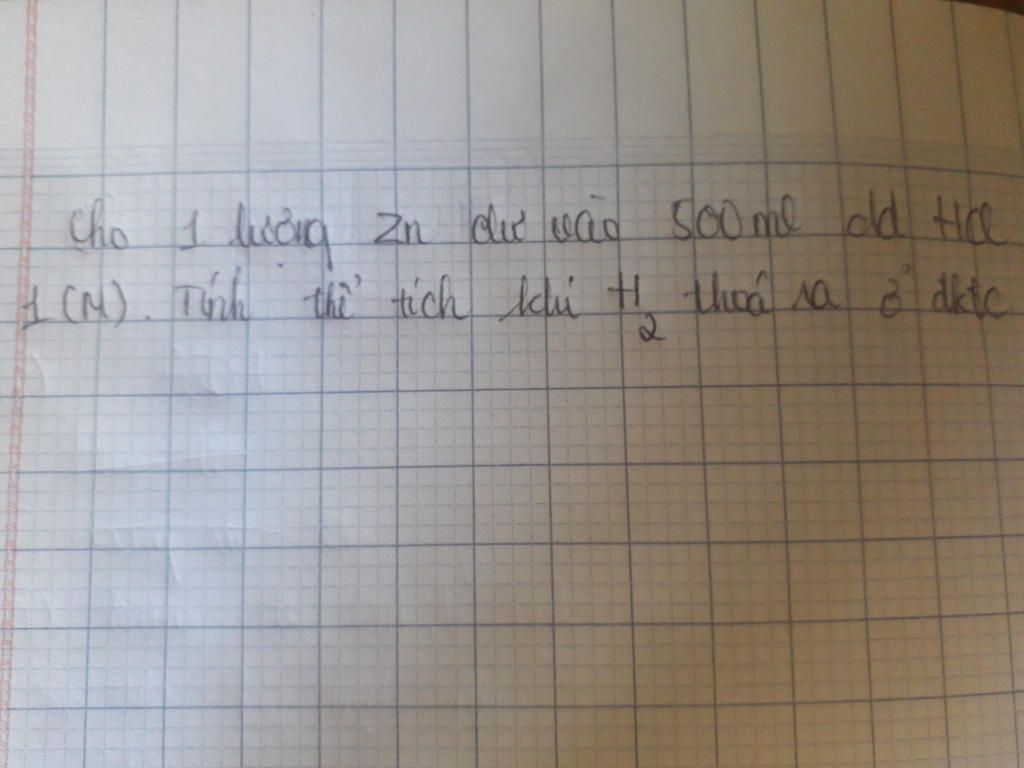 Cho 1 lượng Zn dư vào 500ml dd HCl
1(M). Tính thể tích khí H2 thoá ra ở đktc